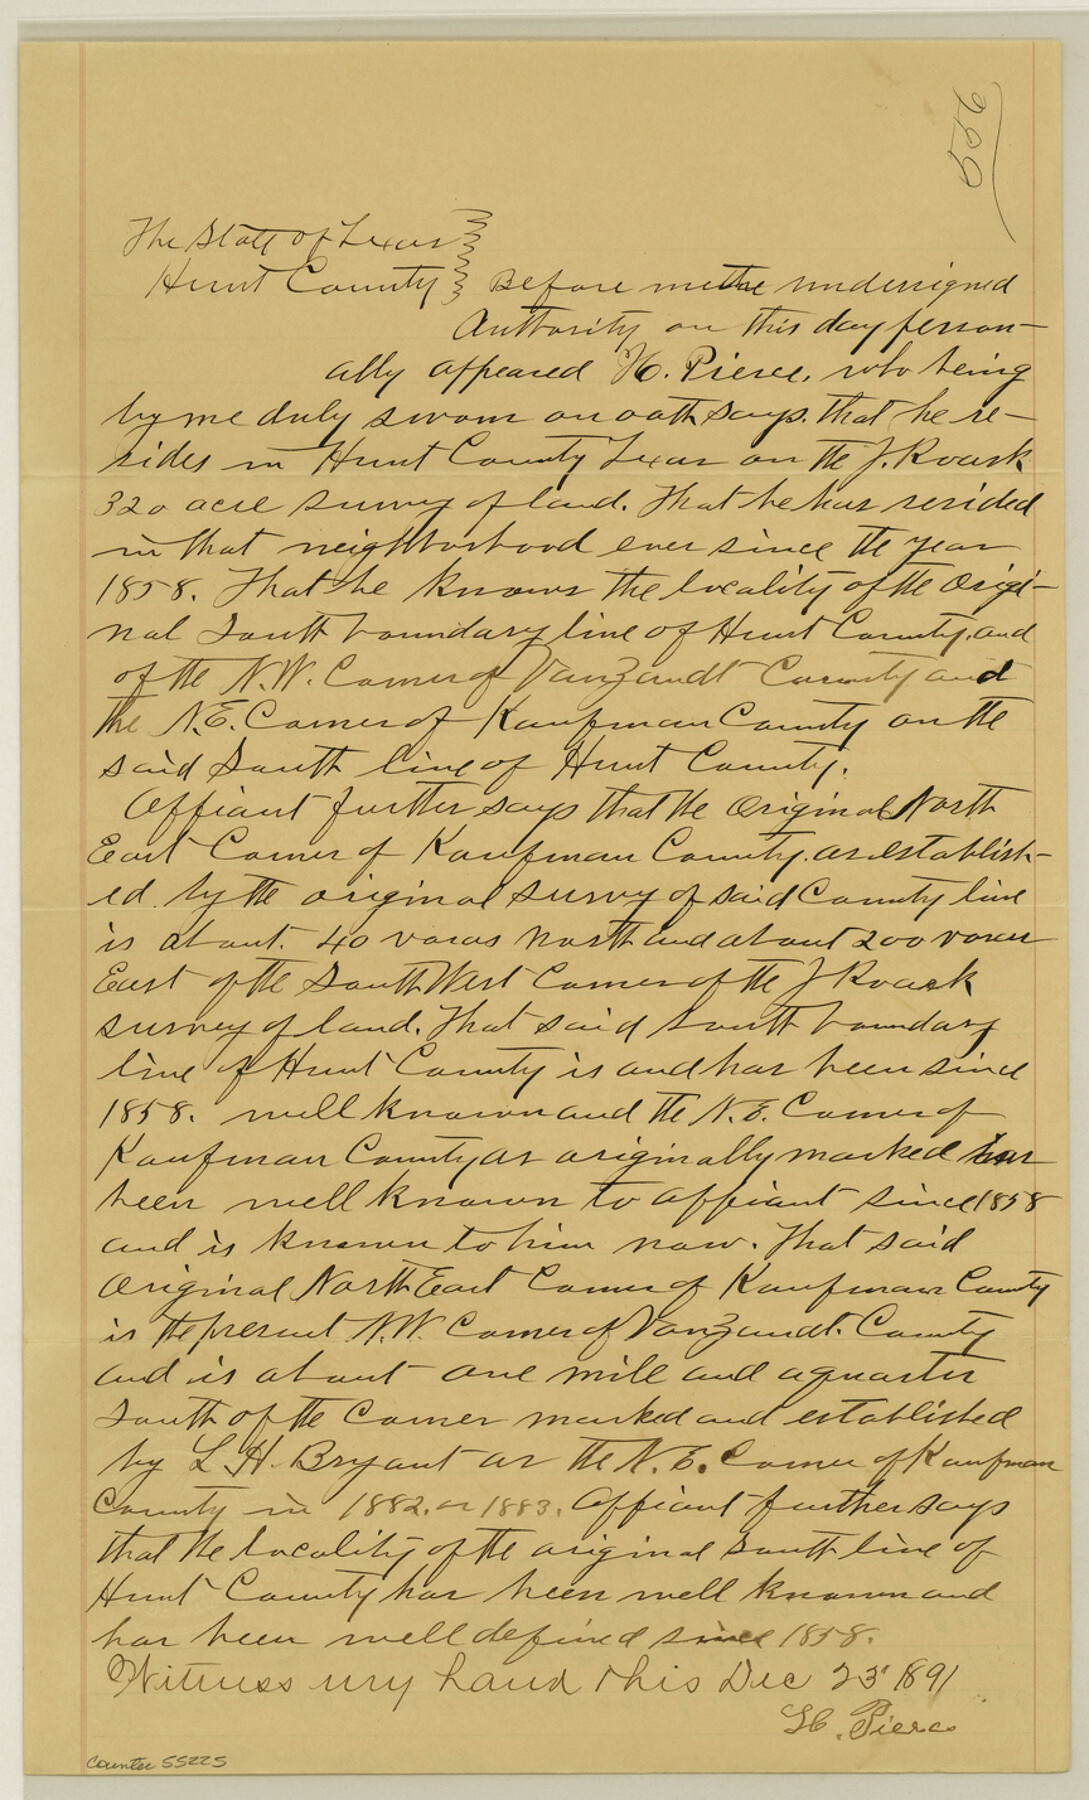 526
The State of Texas
Hunt County Before me the undersigned
Authority on this day person-
ally appeared H. Pierce, who being
by me duly sworn on oath says. that he re-
sides in Hunt County Texas on the J. Roark
320 acre survey of land. That he has resided
in that neighborhood ever since the year
1858. That he knows the locality of the Origi-
nal South boundary line of Hunt County, and
of the N.W. Corner of VanZandt County and
the N.E. Corner of Kaufman County on the
said South line of Hunt County.
Affiant further says that the Original North
East Corner of Kaufman County. as establish-
ed by the original survey of said County line
is about. 40 varas North and about 200 varas
East of the South West Corner of the J Roark
survey of land. That said South boundary
line of Hunt County is and has been since
1858. well known and the N.E. Corner of
Kaufman County as originally marked has
been well known to affiant since 1858
and is known to him now. That said
Original North East Corner of Kaufman County
is the present N.W. Corner of VanZandt. County
and is about one mill and a quarter
South of the Corner marked and established
by L. H. Bryant as the N.E. Corner of Kaufman
County in 1882. or 1883. Affiant further says
that the locality of the original South line of
Hunt County has been well known and
has been well defined since 1858.
Witness my hand this Dec 23 1891
H. Pierce
Counter 55225